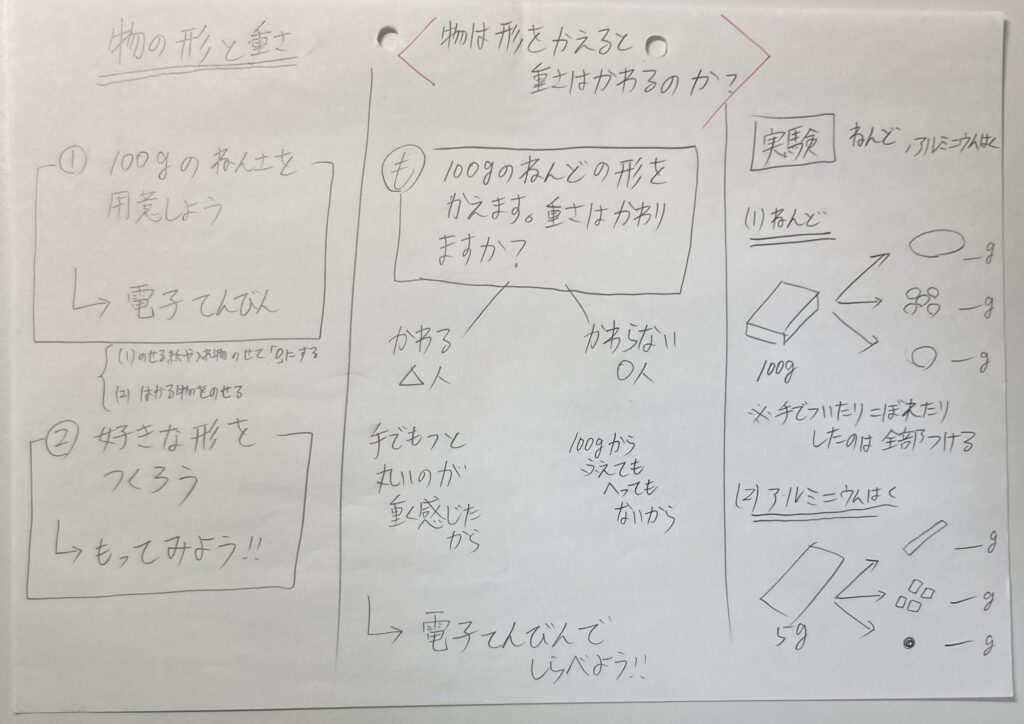 物の形と重さ
① 100gのねん土を
用意しよう
↳ 電子てんびん
(1)のせる紙や入れ物のせて「0」にする
(2) はかる物をのせる
② 好きな形を
つくろう
↳ もってみよう!!
〈物は形をかえると
重さはかわるのか?〉
も 100gのねんどの形を
かえます。重さはかわり
ますか?
かわる
△人
かわらない
○人
手でもつと
丸いのが
重く感じた
から
100gから
ふえても
へっても
ないから
↳ 電子てんびんで
しらべよう!!
実験 ねんど、アルミニウムはく
(1) ねんど
100g
_g
_g
_g
※手でついたりこぼれたり
したのは全部つける
(2) アルミニウムはく
5g
_g
_g
_g